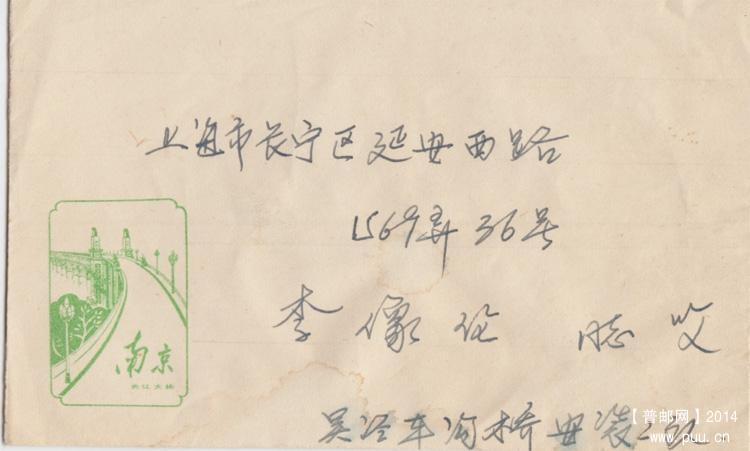 上海市长宁区延安西路
1569弄36号
李像伦 同志 收
南京
长江大桥
吴泾车沟桥安装二队
【普邮网】2014
www.puu.cn